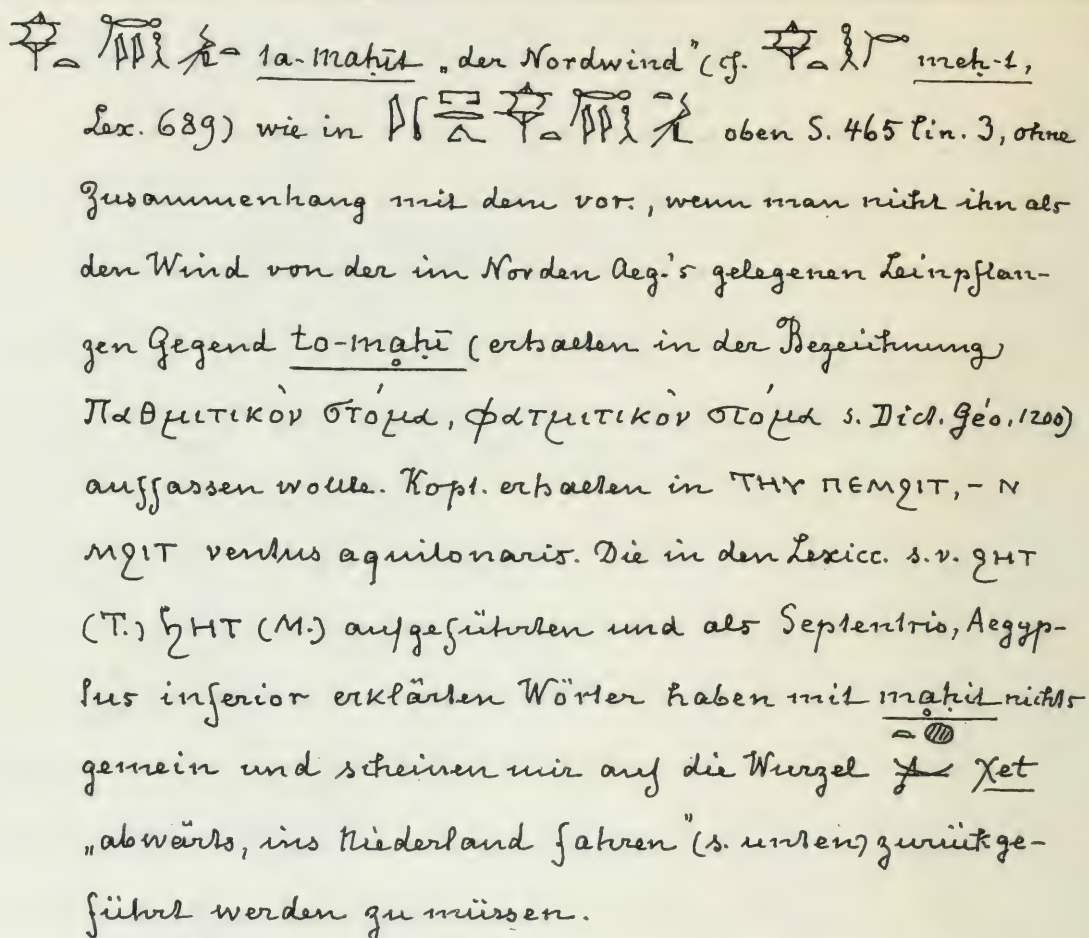 ta-maḥīt „der Nordwind" (cf. meḥ-t,
Lex. 689) wie in oben S. 465 lin. 3, ohne
Zusammenhang mit dem vor., wenn man nicht ihn als
den Wind von der im Norden Aeg.'s gelegenen Leinpflan-
zen Gegend to-mḁḥī (erhalten in der Bezeichnung
Παθμιτικὸν στόμα, φατμιτικὸν στόμα s. Dict. Géo. 1200)
auffassen wollte. Kopt. erhalten in ⲦⲎⲨ ⲠⲈⲘϨⲒⲦ, - Ⲛ
ⲘϨⲒⲦ ventus aquilonaris. Die in den Lexicc. s.v. ϨⲎⲦ
(T.) ϦⲎⲦ (M.) aufgeführten und als Septentrio, Aegyp-
tus inferior erklärten Wörter haben mit mḁḥit nichts
gemein und scheinen mir auf die Wurzel χet
„abwärts, ins Niederland fahren" (s. unten) zurückge-
führt werden zu müssen.